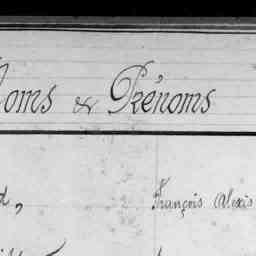 Noms & Prénoms
François Alexis